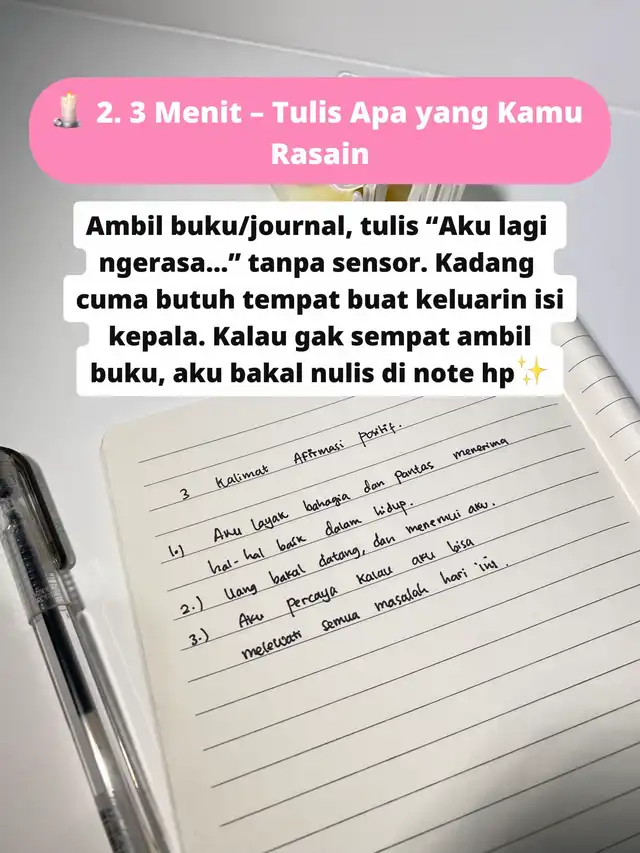 🕯️ 2. 3 Menit – Tulis Apa yang Kamu
Rasain
Ambil buku/journal, tulis “Aku lagi
ngerasa...” tanpa sensor. Kadang
cuma butuh tempat buat keluarin isi
kepala. Kalau gak sempat ambil
buku, aku bakal nulis di note hp✨
3 Kalimat Afirmasi positif.
1.) Aku layak bahagia dan pantas menerima
hal-hal baik dalam hidup.
2.) Uang bakal datang, dan menemui aku.
3.) Aku percaya kalau aku bisa
melewati semua masalah hari ini.